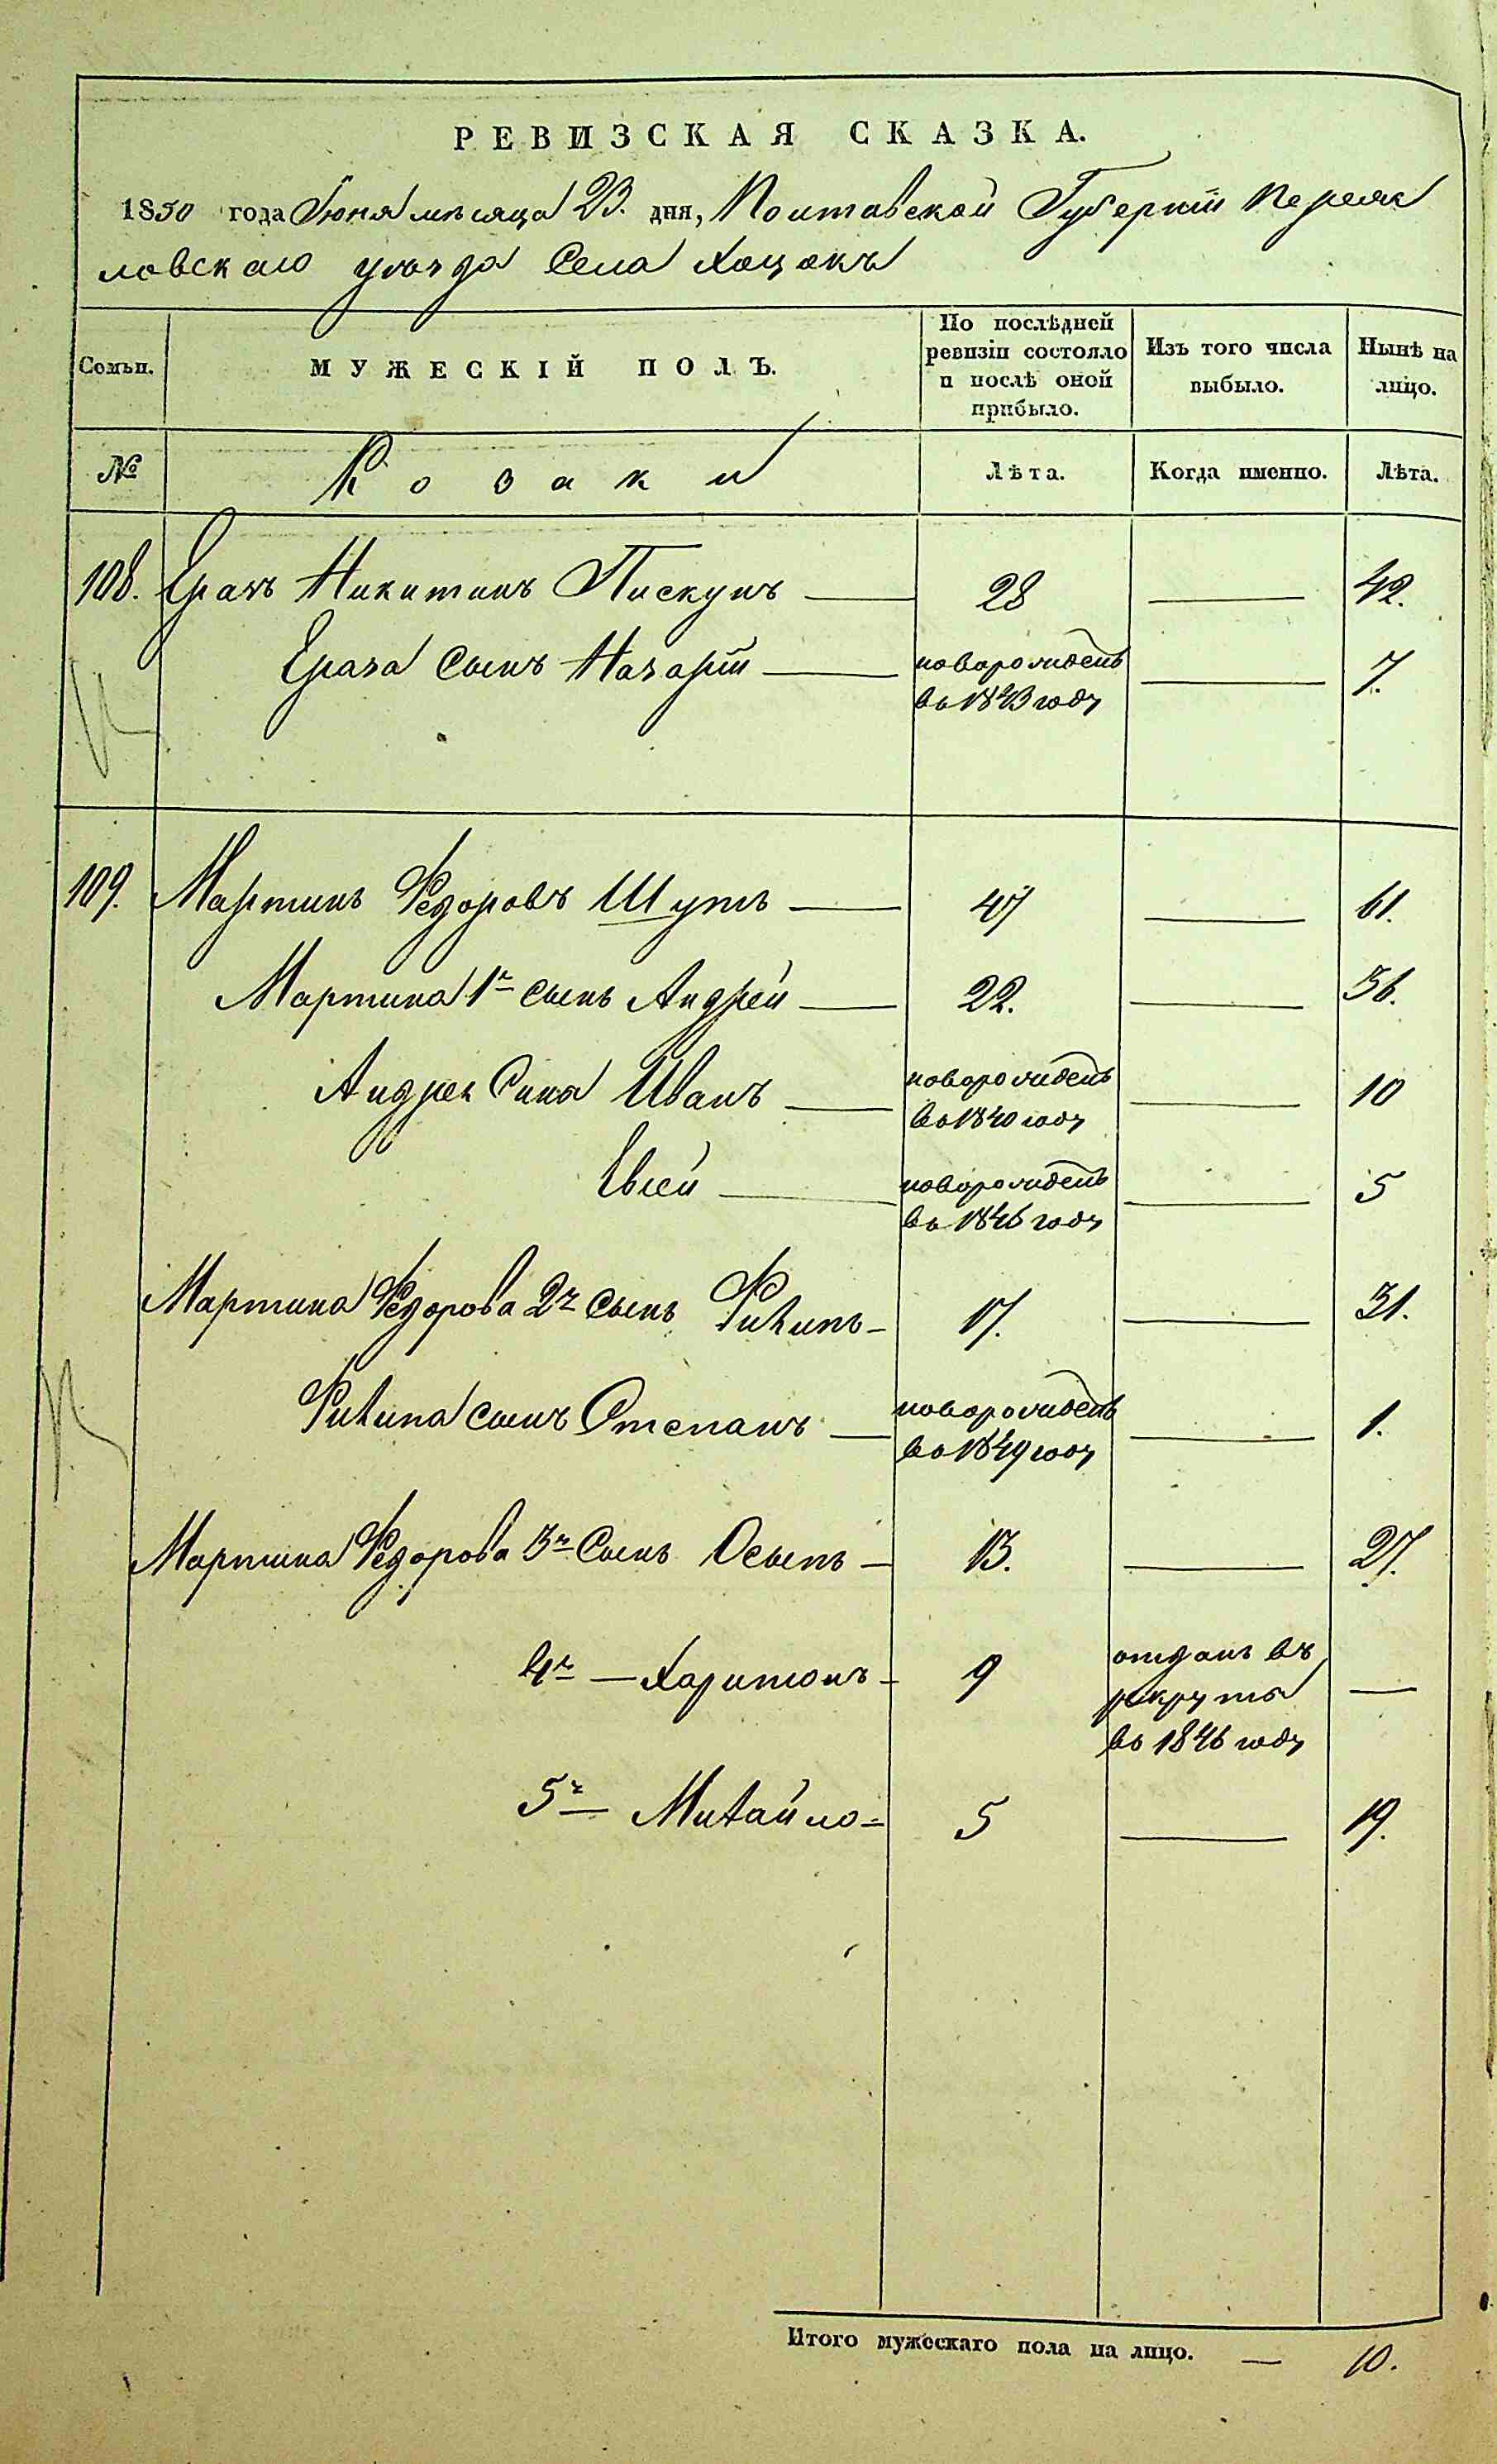 РЕВИЗСКАЯ СКАЗКА.
1850 года Июня месяца 23. дня, Полтавской Губернiи Переяс
ловскаго уезда Села Хоцокъ
Семьи. МУЖЕСКІЙ ПОЛЪ. По послѣдней ревизіи состояло и послѣ оной прибыло. Изъ того числа выбыло. Нынѣ на лицо.
№ Козаки Лѣта. Когда именно. Лѣта.
108. Никитинъ Пискунъ — 28 — 42.
сынъ Назарiй — новорожденъ во 1843 году — 7.
109. Мартинъ Федоровъ Шутъ — 47 — 61.
Мартина 1й сынъ Андрей — 22. — 36.
Андрея Сина Иванъ — новорожденъ во 1840 году — 10
Евсей — новорожденъ во 1846 году — 5
Мартина Федорова 2й сынъ Филипъ — 17. — 31.
Филипа сынъ Степанъ — новорожденъ во 1849 году — 1.
Мартина Федорова 3й Сынъ Осыпъ — 13. — 27.
4й — Харитонъ — 9 отданъ въ рекруты во 1846 году —
5й — Михайло = 5 — 19.
Итого мужескаго пола на лицо. — 10.